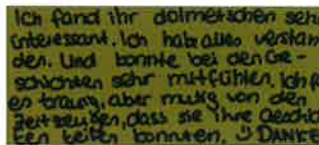 Ich fand ihr dolmetschen seh
interessant. Ich habe alles verstan
den. Und konnte bei den Ge-
schichten sehr mitfühlen. Ich f
es traurig, aber mutig von den
Zeitzeugen, dass sie ihre Geschich
ten teilen konnten. DANKE